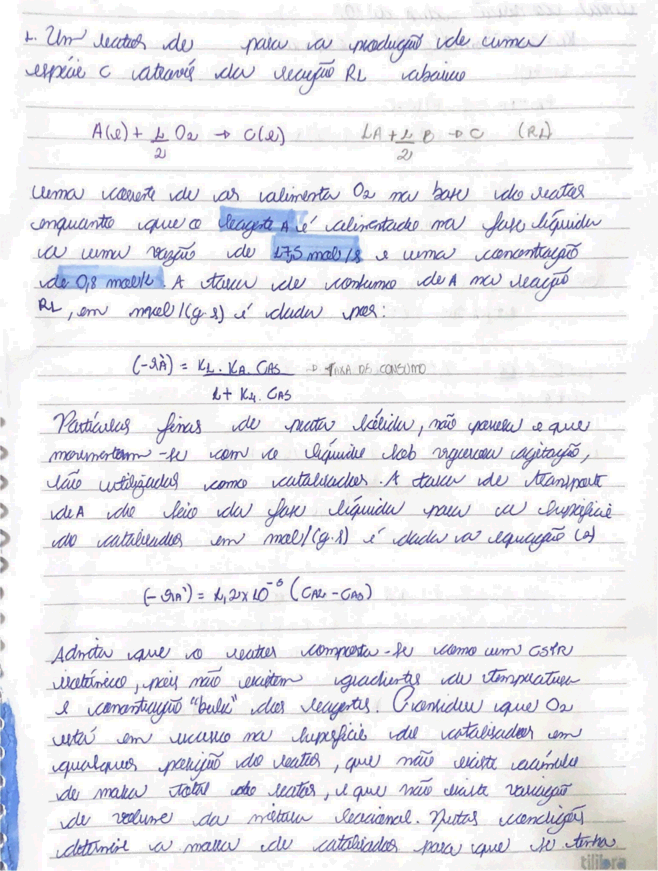 1. Um reator de para a produção de uma
espécie C através da reação R1 abaixo
A(l) + 1/2 O2 → C(l) 1A + 1/2 B → C (R1)
uma corrente de ar alimenta O2 na base do reator
enquanto que o reagente A é alimentado na fase líquida
a uma vazão de 17,5 mol/s e uma concentração
de 0,8 mol/L. A taxa de consumo de A na reação
R1, em mol/(g.s) é dada por:
(-rA) = K1 . KA . CAS / 1 + K4 . CAS → TAXA DE CONSUMO
Partículas finas de prata sólida, não porosa e que
movimentam-se com o líquido sob vigorosa agitação,
são utilizadas como catalisador. A taxa de transporte
de A do seio da fase líquida para a superfície
do catalisador em mol/(g.s) é dada a equação (2)
(-rA') = 1,2x10⁻⁶ (CAL - CAS)
Admita que o reator comporta-se como um CSTR
isotérmico, pois não existem gradientes de temperatura
e concentração "bulk" dos reagentes. Considere que O2
está em excesso na superfície do catalisador em
qualquer posição do reator, que não existe acúmulo
de massa total do reator, e que não existe variação
de volume da mistura reacional. Nestas condições
determine a massa de catalisador para que se tenha
tilibra